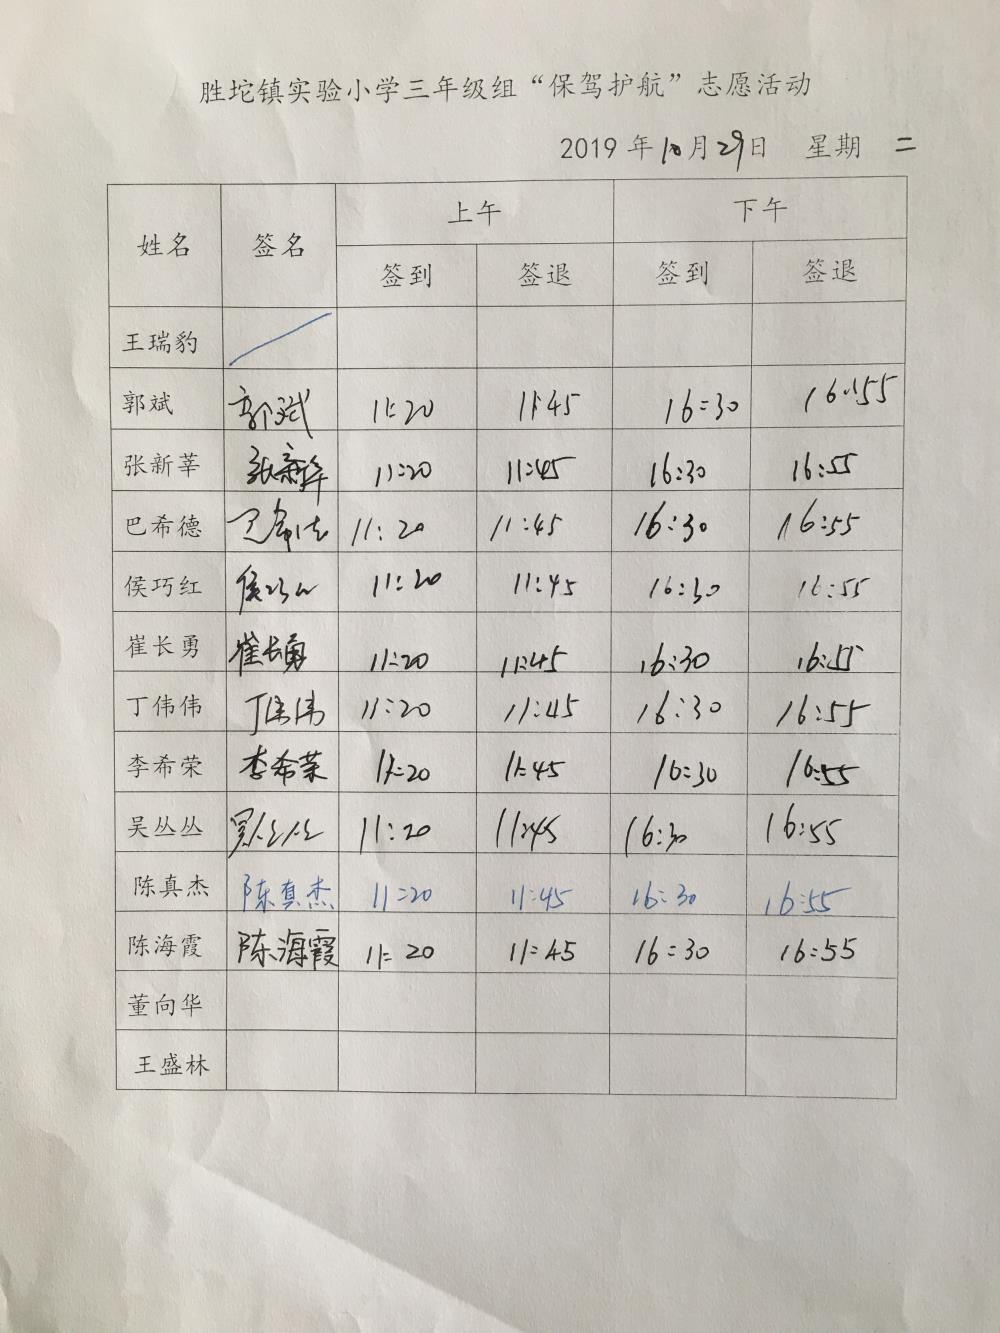 胜坨镇实验小学三年级组“保驾护航”志愿活动
2019年10月29日 星期 二
姓名 签名 上午 下午
签到 签退 签到 签退
王瑞豹
郭斌 郭斌 11:20 11:45 16:30 16:55
张新莘 张新莘 11:20 11:45 16:30 16:55
巴希德 巴希德 11:20 11:45 16:30 16:55
侯巧红 侯巧红 11:20 11:45 16:30 16:55
崔长勇 崔长勇 11:20 11:45 16:30 16:55
丁伟伟 丁伟伟 11:20 11:45 16:30 16:55
李希荣 李希荣 11:20 11:45 16:30 16:55
吴丛丛 吴丛丛 11:20 11:45 16:30 16:55
陈真杰 陈真杰 11:20 11:45 16:30 16:55
陈海霞 陈海霞 11:20 11:45 16:30 16:55
董向华
王盛林